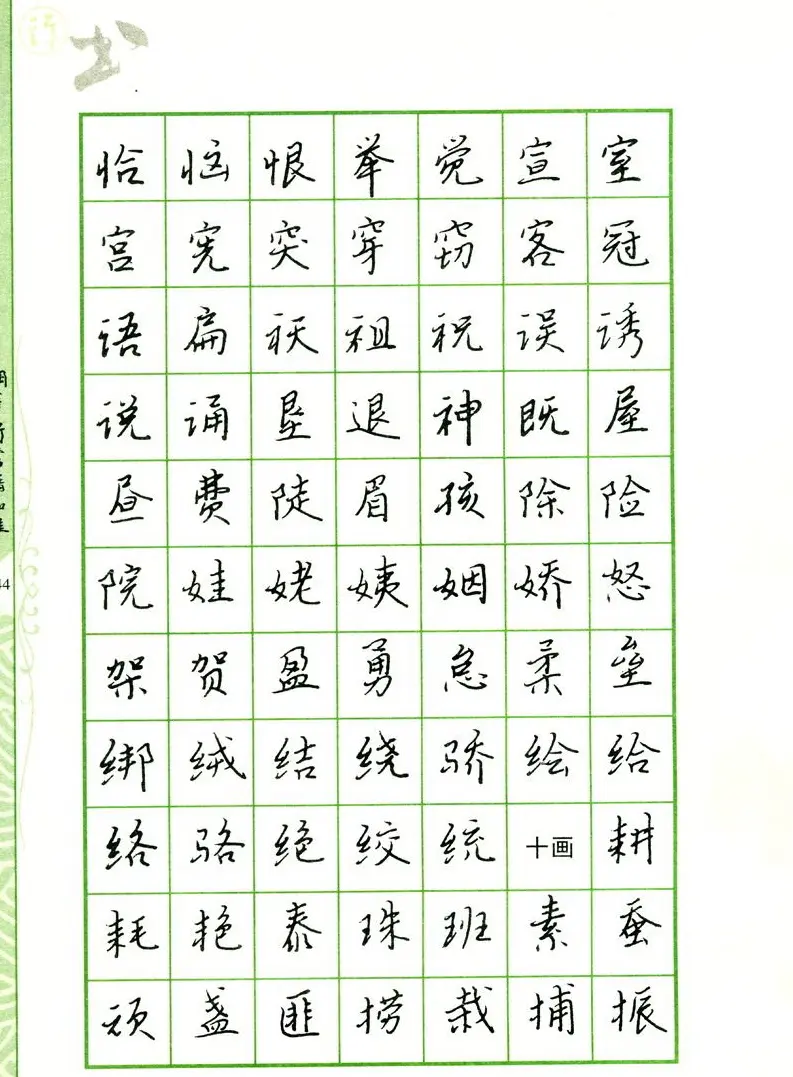 书
恰 恼 恨 举 觉 宣 室
宫 宪 突 穿 窃 客 冠
语 扁 袄 祖 祝 误 诱
说 诵 垦 退 神 既 屋
昼 费 陡 眉 孩 除 险
院 娃 姥 姨 姻 娇 怒
架 贺 盈 勇 怠 柔 垒
绑 绒 结 绕 骄 绘 给
络 骆 绝 绞 统 十画 耕
耗 艳 泰 珠 班 素 蚕
顽 盏 匪 捞 栽 捕 振
44